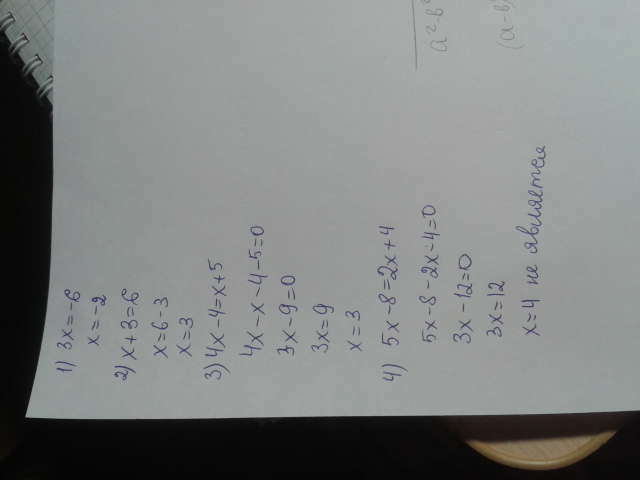 1) 3x=-6
x=-2
2) x+3=6
x=6-3
x=3
3) 4x-4=x+5
4x-x-4-5=0
3x-9=0
3x=9
x=3
4) 5x-8=2x+4
5x-8-2x-4=0
3x-12=0
3x=12
x=4 не является
a²-b²
(a-b)